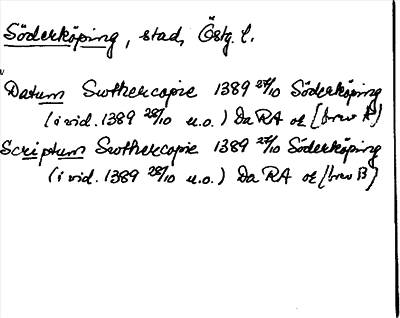 Söderköping, stad, Östg. l.
"Datum Suthercopie 1389 27/10 Söderköping
(i vid. 1389 28/10 u.o.) Da RA oe [brev A)
Scriptum Suthercopie 1389 27/10 Söderköping
(i vid. 1389 28/10 u.o.) Da RA oe [brev B)